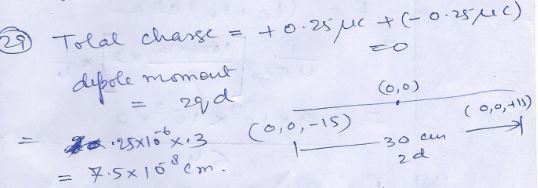 29 Total charge = +0.25 μc + (-0.25 μc)
= 0
dipole moment
= 2qd
= .25x10⁻⁶ x .3
= 7.5x10⁻⁸ cm.
(0,0)
(0,0,-15)
(0,0,+15)
30 cm
2d